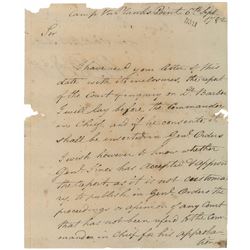 Camp Ver Planks Point 6th Sept
1782
Sir
I have recd your letter of this
date with its inclosures, the report
of the Court of enquiry on Lt. Barber
I will lay before the Commander
in Chief, and if he consents it
shall be inserted in Genl Orders
I wish however to know whether
Genl has accepted & approved
the report, as it is not customary
to publish in Genl Orders the
proceedings or opinion of any Court
that has not been refd to the Com
mander in Chief for his approba
tion